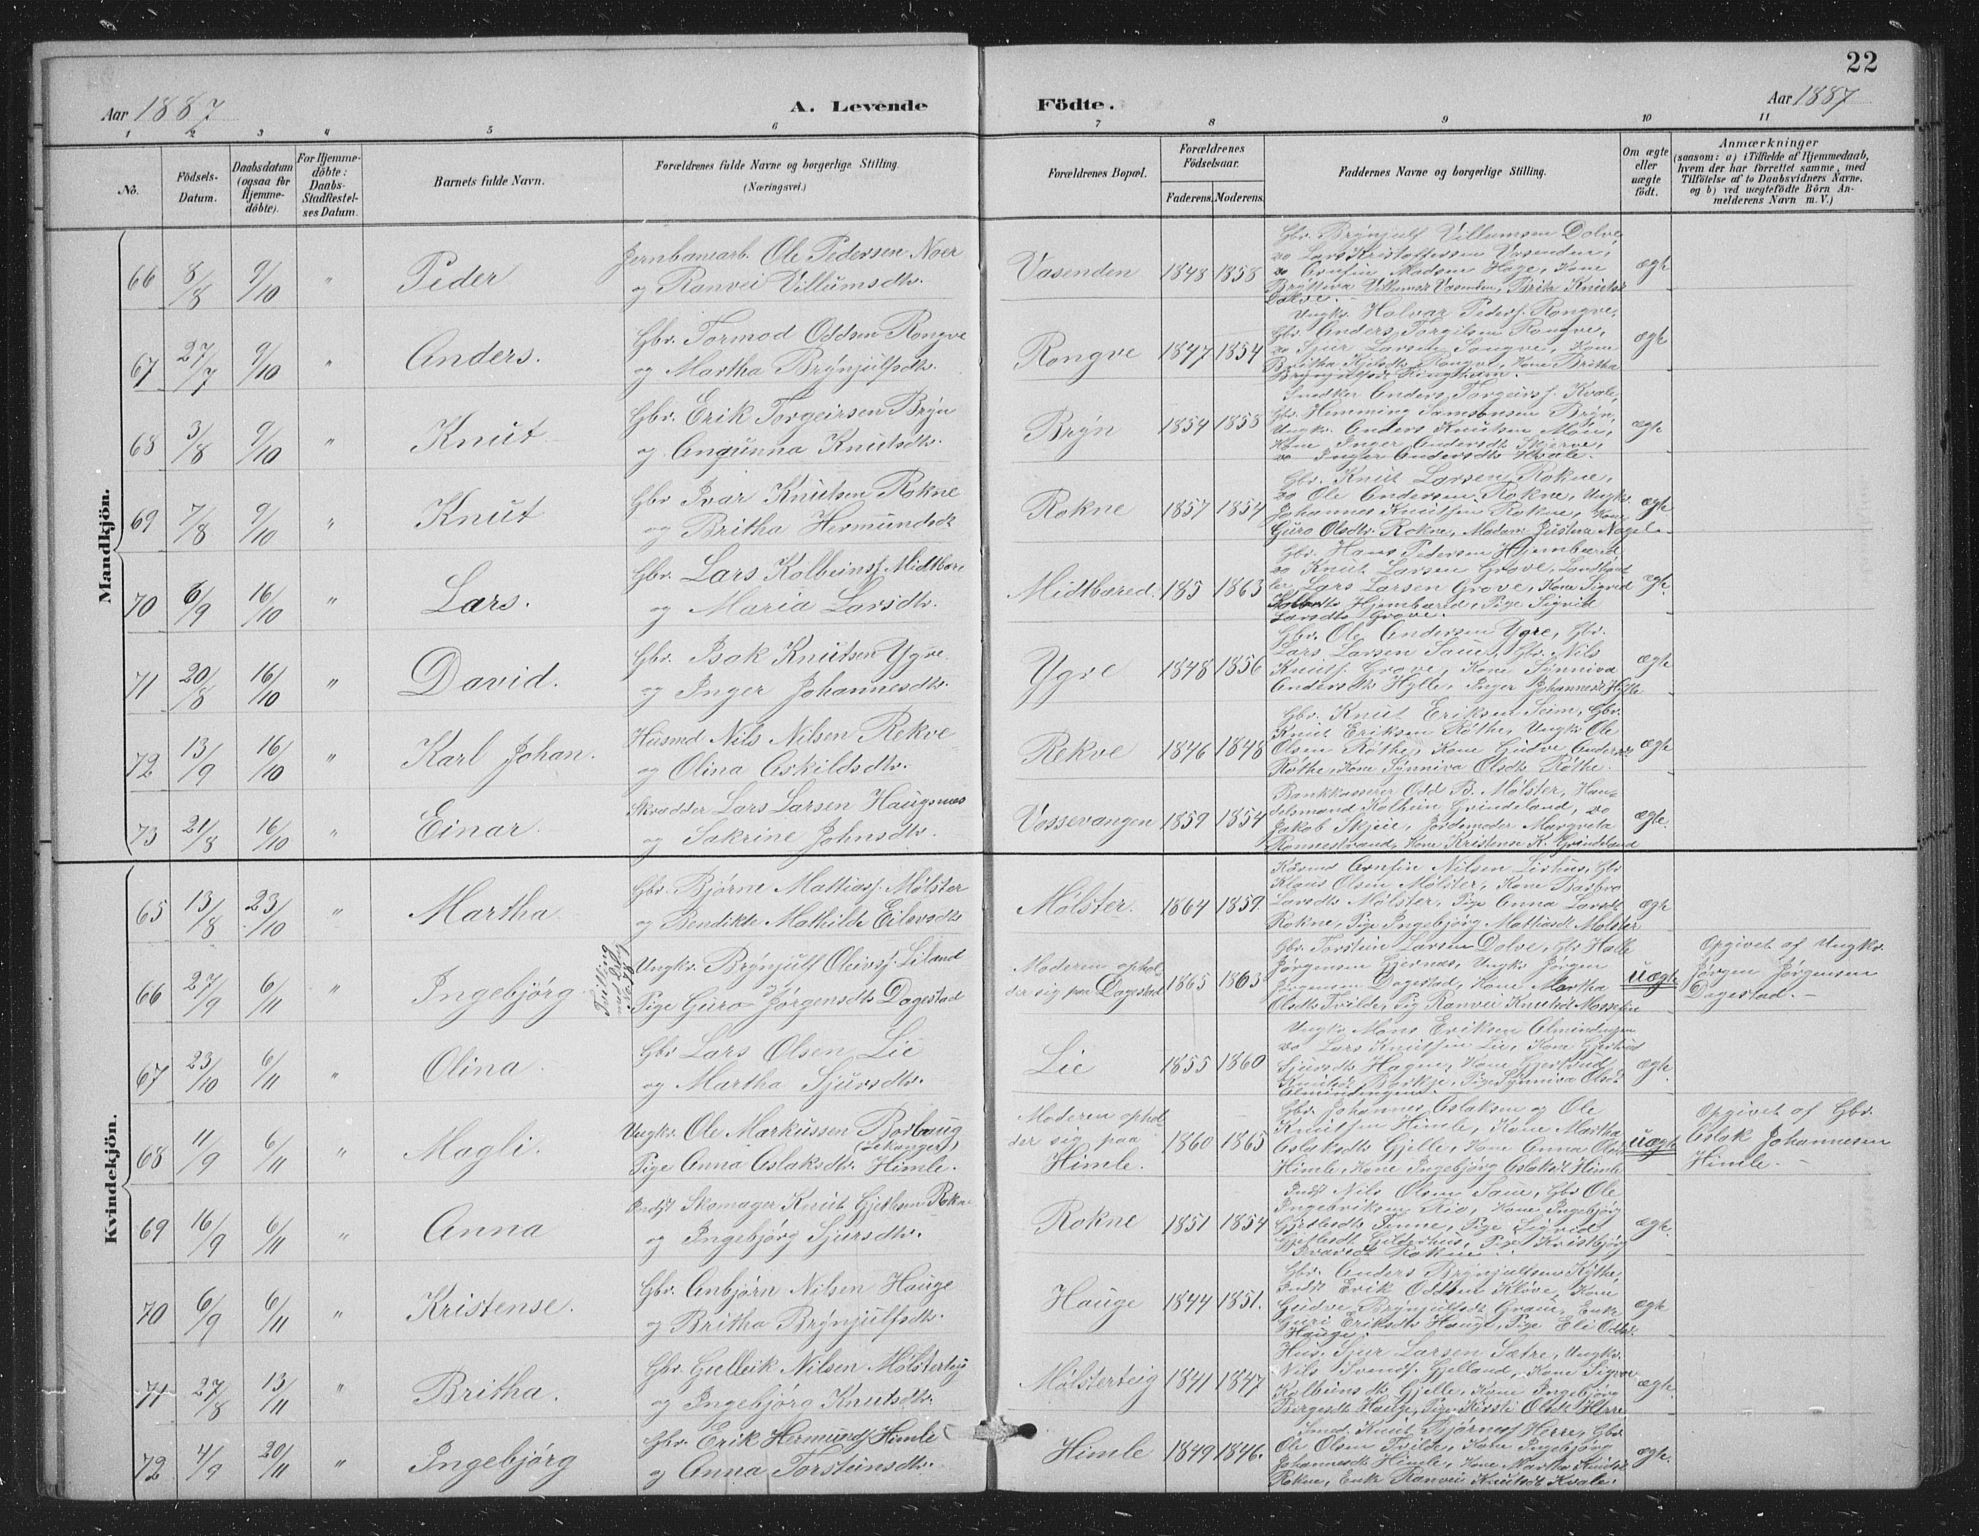 22
Aar 1887
A. Levende Födte.
Aar 1887
1 2 3 4 5 6 7 8 9 10 11
No.
Födsels-Datum.
Daabsdatum (ogsaa for Hjemme-döbte).
For Hjemme-döbte: Daabs-Stadfæstel-ses Datum.
Barnets fulde Navn.
Forældrenes fulde Navne og borgerlige Stilling.
(Næringsvei.)
Forældrenes Bopæl.
Forældrenes Födselsaar.
Faderens. Moderens.
Faddernes Navne og borgerlige Stilling.
Om ægte eller uægte födt.
Anmærkninger
(saasom: a) i Tilfælde af Hjemmedaab,
hvem der har forrettet samme, med
Tilföielse af to Daabsvidners Navne,
og b) ved uægtefödte Börn An-
melderens Navn m. V.)
Mandkjön.
66 8/8 9/10 " Peder
Jernbanearb. Ole Pedersen Noer
og Ranvei Villumsdtr.
Vasenden 1848 1858
Gbr. Brynjulf Villumsen Dolve,
do Lars Kristoffersen Vasenden,
do Arnfin Madsen Hage, Kone
Brytteva Villumsdt Vasenden, Brita Knutsd
Dolve.
ægte
67 27/7 9/10 " Anders.
Gbr. Tormod Oddsen Rongve
og Martha Brynjulfsdtr.
Rongve 1847 1854
Ungkr. Halvar Peders. Rongve,
Gbr. Anders Torgilsen Rongve,
do Sjur Larsen Rongve, Kone
Britha Rongve, Kone Britha
ægte
68 3/8 9/10 " Knut
Gbr. Erik Torgeirsen Bryn
og Angunna Knutsdtr.
Bryn 1854 1858
Snedker Anders Torgeirs. Kvale,
Gbr. Hemming Samsonsen Bryn,
Ungkr. Anders Knutsen Møn,
Kone Inger Andersdt Skjerve,
do Inger Andersdtr Kvale.
ægte
69 7/8 9/10 " Knut
Gbr Ivar Knutsen Rokne
og Britha Hermundsdt
Rokne 1857 1854
Gbr. Knut Larsen Rokne,
do Ole Andersen Rokne, Ungkr
Johannes Knutsen Rokne, Kone
Guro Olsdtr. Rokne, Madam Justine Nagel
ægte
70 6/9 16/10 " Lars.
Gbr. Lars Kolbeins. Midtbære
og Maria Larsdtr.
Midtbæred. 185 1863
Gbr. Hans Pedersen Hjembæred
do Knut Larsen Grove,
Lars Larsen Grove, Kone Sigrid
Hjembæred, Pige Sigvite
Larsdtr Grove.
ægte.
71 20/8 16/10 " David.
Gbr. Isak Knutsen Ygre
og Inger Johannesdtr.
Ygre 1848 1856
Gbr. Ole Andersen Ygre, Gbr.
Lars Larsen Saue, Gbr. Nils
Knuts. Grove, Kone Synniva
Andersdtr Hylle, Inger Johannesdt Hylle
ægte
72 13/9 16/10 " Karl Johan.
Husmd Nils Nilsen Rekve
og Olina Askildsdtr.
Rekve 1846 1848
Gbr. Knut Eriksen Seim, Gbr.
Knut Eriksen Røthe, Ungkr Ole
Olsen Røthe, Kone Gudve Andersdt
Røthe, Kone Synniva Olsdtr Røthe.
ægte
73 21/8 16/10 " Einar.
Skrædder Lars Larsen Haugsnæs
og Sakrine Johnsdtr.
Vossevangen 1859 1854
Bankkasserer Odd B. Mølster, Han-
delsmand Kolbein Grindeland, do
Jakob Skjeie, Jordemoder Margreta
Rønnestrand, Kone Kristense K. Grindeland
ægte.
Kvindekjön.
65 13/8 23/10 " Martha
Gbr. Bjørne Mattias. Mølster
og Bendikte Mathilde Eilevsdtr
Mølster. 1864 1859
Arnfin Nilsen Lirhus, Gbr
Klaus Olsen Mølster, Kone Barbro
Larsdtr Mølster, Pige Anna Larsdt
Rokne, Pige Ingebjørg Mattiasdt Mølster
ægte
66 27/9 6/11 " Ingebjørg
Tvilling
Ungkr. Brynjulf Oleivs. Liland
og
Pige Guro Jørgensdtr Dagestad
Moderen ophol-
der sig paa Dagestad 1865 1863
Gbr. Torstein Larsen Dolve, Gbr Halle
Jørgensen Gjernæs, Ungkr Jørgen
Jørgensen Dagestad, Kone Martha
Olsdtr Tvilde, Pig Ranvei Knutsdt
uægte
Opgivet af Ungkr.
Jørgen Jørgensen
Dagestad.
67 23/10 6/11 " Olina
Gbr Lars Olsen Lie
og Martha Sjursdtr.
Lie 1855 1860
Ungkr. Mons Eriksen Almindingen
do Lars Knutsen Lie, Kone Gjertrud
Sjursdtr Hagne, Kone Gjertrud
Knutsdt Pige Synniva Olsd
Almindingen.
ægte.
68 11/9 6/11 " Magli.
Ungkr. Ole Markussen Borlaug
(Lekanger),
Pige Anna Aslaksdtr. Himle.
Moderen ophol
der sig paa
Himle. 1860 1865
Gbr. Johannes Aslaksen og Ole
Knutsen Himle, Kone Martha
Aslaksdtr Gjelle, Kone Anna Olsdt
Himle, Kone Ingebjørg Aslaksdt Himle
uægte
Opgivet af Gbr.
Aslak Johannesen
Himle.
69 16/9 6/11 " Anna
Indst Skomager Knut Gjetlesen Rokne
og Ingebjørg Sjursdtr.
Rokne 1851 1854
Indst Nils Olsen Saue, Gbr Ole
Ingebriktsen Rio, Kone Ingebjørg
Gjetlesdtr Finne, Pige Sigvid
Gjetlesdt Gilderhus, Pige Kristbjørg
Ivarsdt Rokne.
ægte.
70 6/9 6/11 " Kristense.
Gbr. Anbjørn Nilsen Hauge
og Britha Brynjulfsdtr.
Hauge 1844 1851.
Gbr. Anders Brynjulfsen Røthe,
Indst Erik Oddsen Kløve, Kone
Gudve Brynjulfsdt Graue, Enke
Guri Eriksdtr Hauge, Pige Eli Oddsd
Hauge.
ægte
71 27/8 13/11 " Britha.
Gbr. Gulleik Nilsen Mølsterteig
og Ingebjørg Knutsdtr.
Mølsterteig 1841 1847
Hus. Sjur Larsen Sætre, Ungkr.
Nils Svends. Gjelland, Kone Sigvor
Kolbeinsdtr Gjelle, Kone Ingebjørg
Børgesdt Hauge, Pige Kirsti Olsdt Herre
ægte.
72 4/9 20/11 " Ingebjørg
Gbr. Erik Hermunds. Himle
og Anna Torsteinsdtr.
Himle 1849 1846.
Smed Knut Bjørnes. Herre, Gbr
Ole Olsen Tvilde, Kone Ingebjørg
Johannesdt Himle, Kone Martha Knutsd
Rokne, Enke Ranvei Knutsdt Kvale.
ægte.